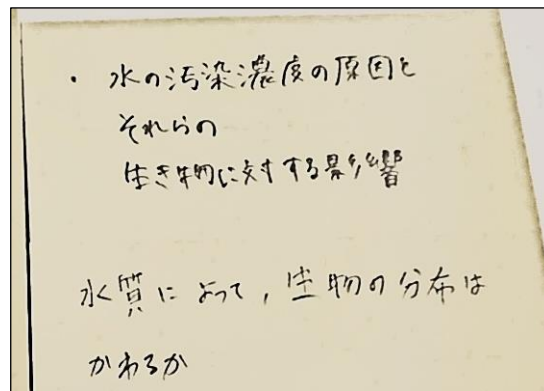 ・水の汚染濃度の原因と
それらの
生き物に対する影響
水質によって,生物の分布は
かわるか